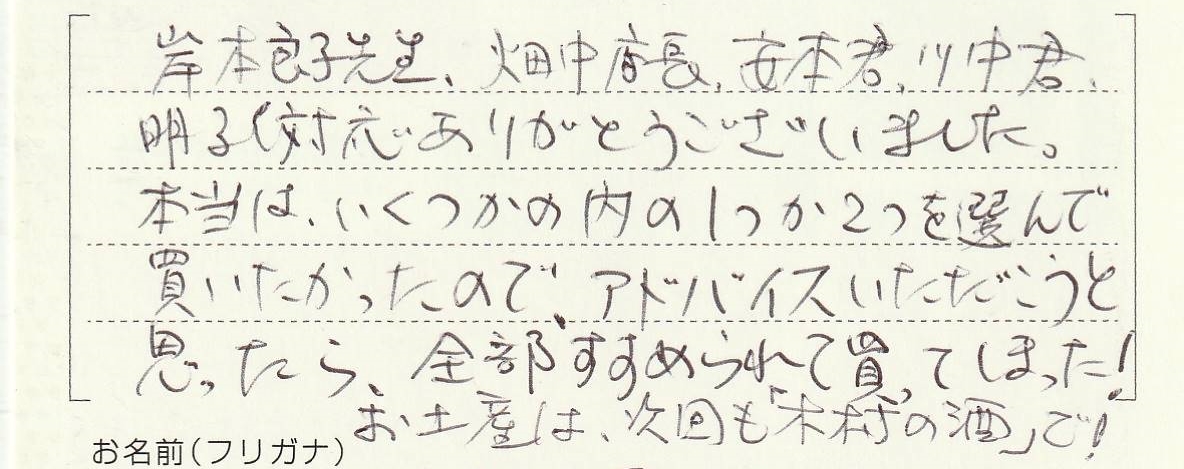 岸本良子先生、畑中店長、安本君、川中君、
明るく対応ありがとうございました。
本当は、いくつかの内の1つか2つを選んで
買いたかったので、アドバイスいただこうと
思ったら、全部すすめられて買ってしまった!
お土産は、次回も「木村の酒」で!
お名前(フリガナ)